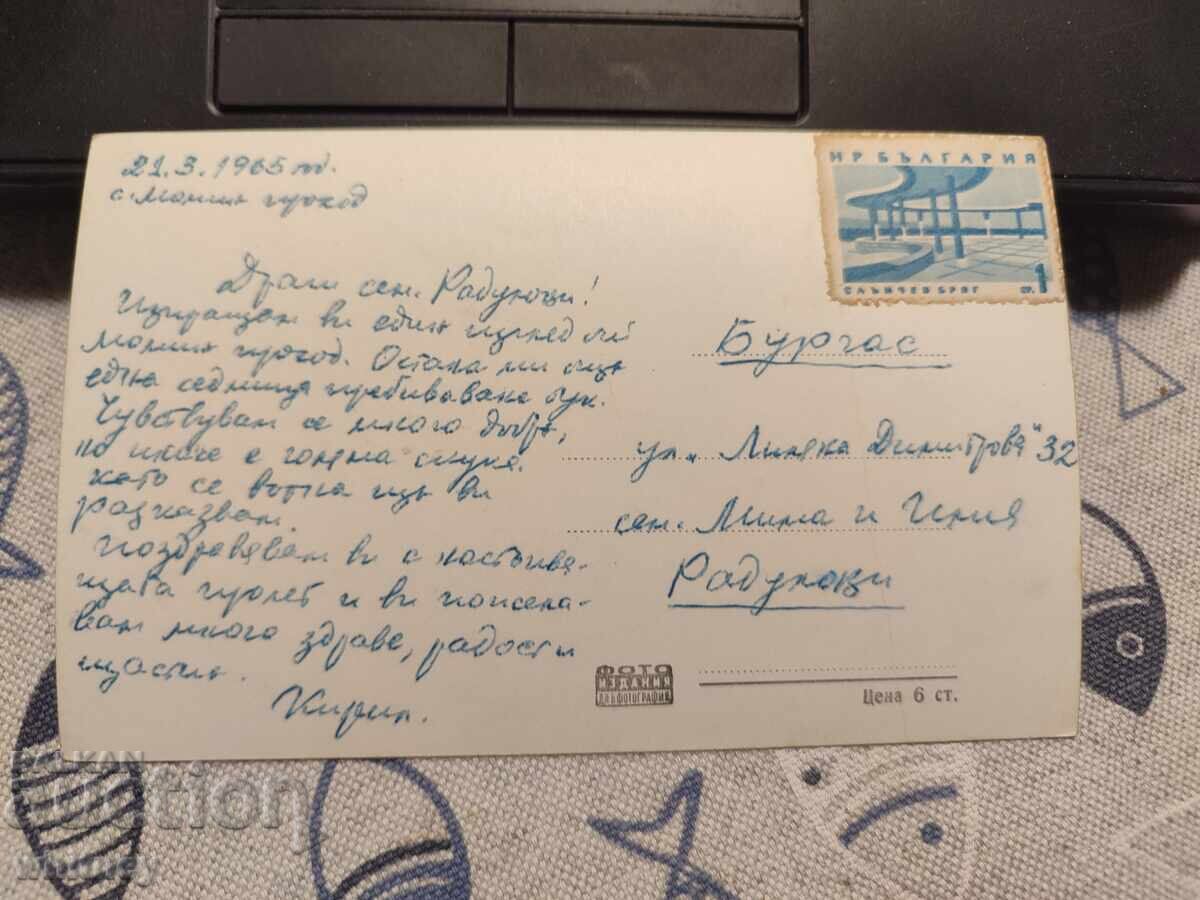 21.3.1965 год.
с. Момин проход
Драги сем. Радулови!
Изпращам ви един изглед от
Момин проход. Остана ми още
една седмица пребиваване тук.
Чувствувам се много добре,
но иначе е голяма скука.
като се върна ще ви
разказвам.
Поздравявам ви с настъпва-
щата пролет и ви пожела-
вам много здраве, радости
щастие.
Кирил.
НР БЪЛГАРИЯ
СЛЪНЧЕВ БРЯГ СТ. 1
Бургас
ул. „Лиляна Димитрова" 32
сем. Мима и Илия
Радулови
ФОТО
ИЗДАНИЯ
ДПФОТОГРАФИЯ
Цена 6 ст.
BALKAN
auction
whitney